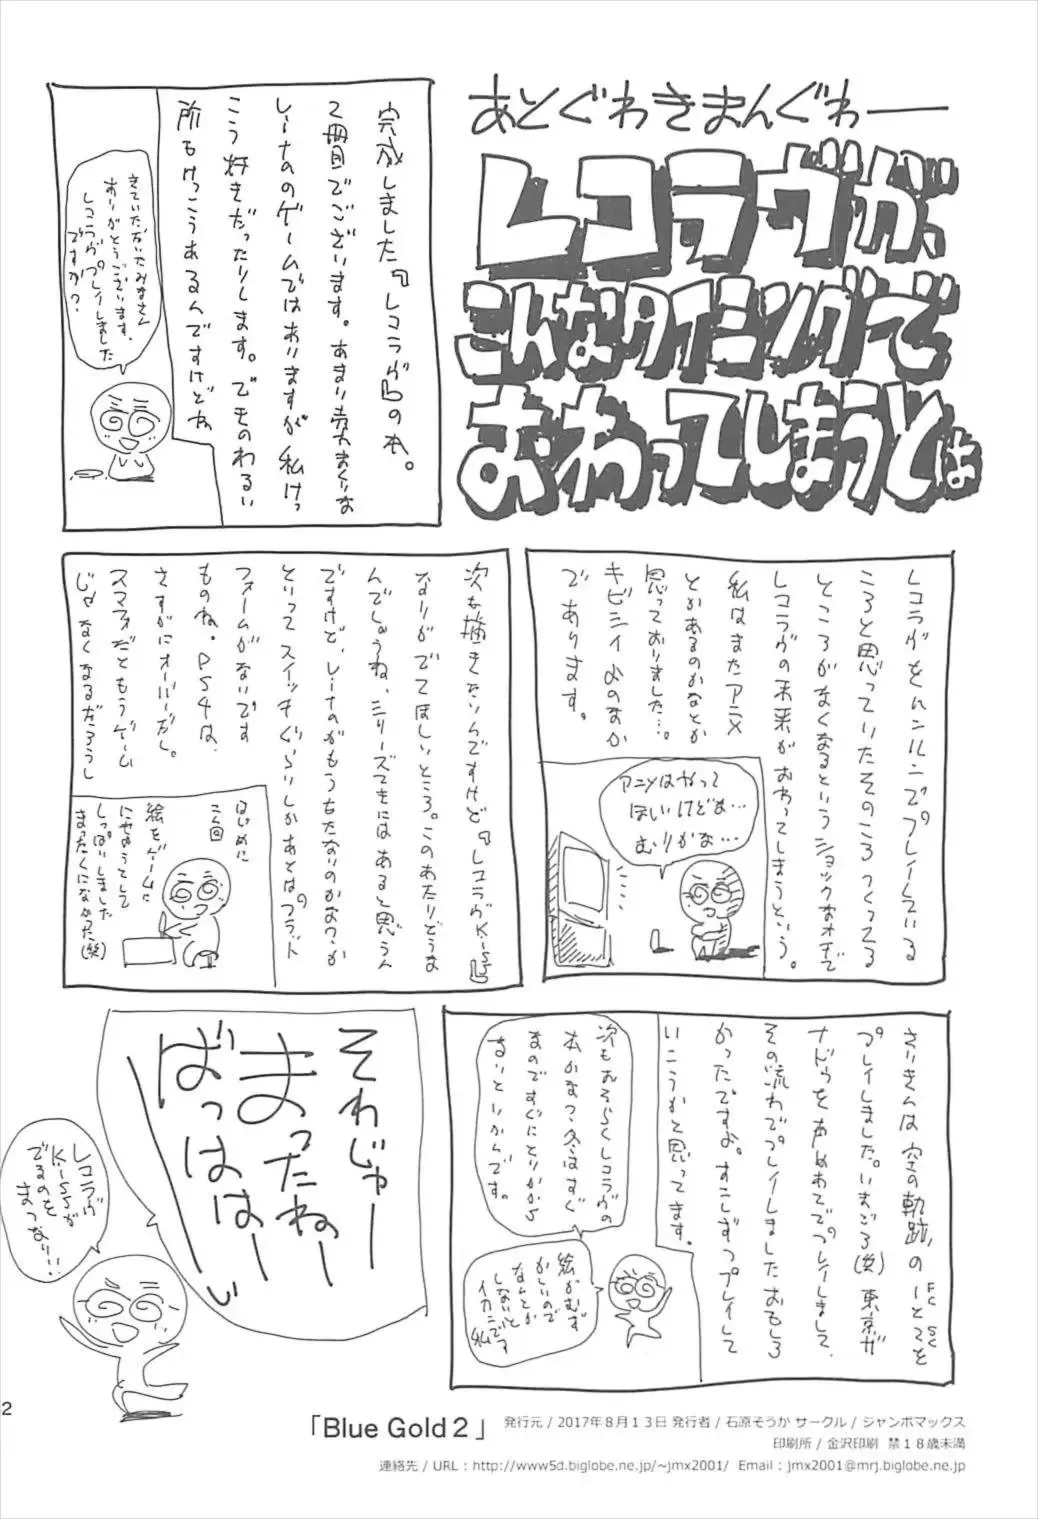 あとぐわきまんぐわー
レコラヴが、
こんなタイミングで
おわってしまうとは
完成しました『レコラヴ』の本。
2冊目でございます。あまり売れまくりな
レーナののゲームではありますが私けっ
こう好きだったりします。でものわるい
所もけっこうあるんですけどね
きていただいたみなさん
ありがとうございます。
レコラヴプレイしました
ですか?
レコラヴをハンルンでプレイしている
ころと思っていたそのころつくってる
ところがなくなるというショックなオチで
レコラヴの未来がおわってしまうという。
私はまたアニメ
とかあるのかなとか
思っておりました…。
キビシイよのなか
であります。
アニメはやって
ほしいけどな…
むりかな…
次も描きたいんですけど『レコラヴKiss』
なりがでてほしいところ。このあたりどうな
んでしょうね、シリーズてきにはあると思うん
ですけど、レーナのがもうちたないのかなっか
といってスイッチぐらいしかあとはプラット
フォームがないです
ものね。PS4は、
さすがにオーバーだし。
スマフォだともうゲーム
じゃなくなるだろうし
はじめに
こん回
絵をゲームに
にせようとして
しっぱいしました
まったくになかった(笑)
さいきんは空の軌跡、のFCとSCを
プレイしました。いまごろ(笑)東京ザ
ナドゥをお声めあてでプレイしまして、
その流れでプレイしましたおもしろ
かったですよ。すこしずつプレイして
いこうかと思ってます。
次もおそらくレコラヴの
本かなっ、冬はすぐ
なのですぐにとりかから
ないといかんです。
絵がむず
かしいので
なんとか
しないと
イカンです
私
それじゃー
まったねー
ばっはははーい
レコラヴ
Kissが
でるのを
まつなり!!
2
「Blue Gold 2」
発行元 / 2017年8月13日 発行者 / 石原そうか サークル / ジャンボマックス
印刷所 / 金沢印刷 禁18歳未満
連絡先 / URL：http://www5d.biglobe.ne.jp/~jmx2001/ Email：jmx2001@mrj.biglobe.ne.jp